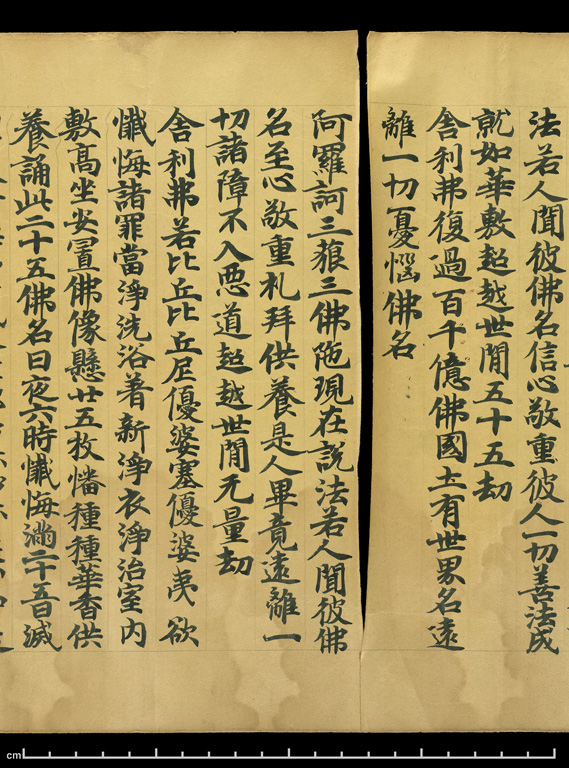 法若人聞彼佛名信心敬重彼人一切善法成
就如華敷超越世閒五十五劫
舍利弗復過百千億佛國土有世界名遠
離一切憂惱佛名
阿羅訶三藐三佛陁現在説法若人聞彼佛
名至心敬重礼拜供養是人畢竟遠離一
切諸障不入惡道超越世閒无量劫
舍利弗若比丘比丘尼優婆塞優婆夷欲
懺悔諸罪當淨洗浴着新淨衣淨治室内
敷髙坐安置佛像懸廿五枚憣種種華香供
養誦此二十五佛名日夜六時懺悔滿二十五日滅
cm